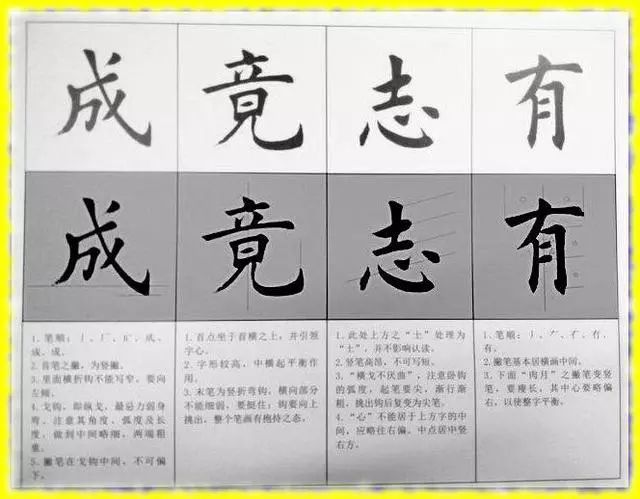 成 竟 志 有
成 竟 志 有
1.笔顺:丿、厂、
成、成。
2.首笔之撇,为竖撇。
3.里面横折钩不能写窄,要向
左倾。
4.戈钩,即纵戈,最忌力弱身
弯,注意其角度,弧度及长
度,做到中间略细,两端粗
重。
5.撇笔在戈钩中间,不可偏
下。
1.首点坐于首横之上,并引领
字心。
2.字形较高,中横起平衡作
用。
3.末笔为竖折弯钩,横向部分
不能细弱,要挺住;钩要向上
挑出,整个笔画有抱持之态。
1.此处上方之“士”处理为
“土”,并不影响认读。
2.竖笔高昂,不可写短。
3.“横戈不厌曲”,注意卧钩
的弧度,起笔要尖,渐行渐
粗,挑出钩后复变为尖笔。
4.“心”不能居于上方字的中
间,应略往右偏。中点居中竖
右方。
1.笔顺:丿、𠂇、冇、有、
有。
2.撇笔基本居横画中间。
3.下面“肉月”之撇笔变竖
笔,要瘦长,其中心要略偏
右,以使整字平衡。